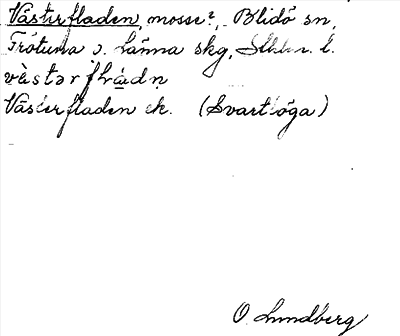 Västerfladen, mosse?, Blidö sn,
Frötuna o. Länna skg, Sthlm. l.
västərflrádṇ
Västerfladen ek. (Svartlöga)
O. Lundberg